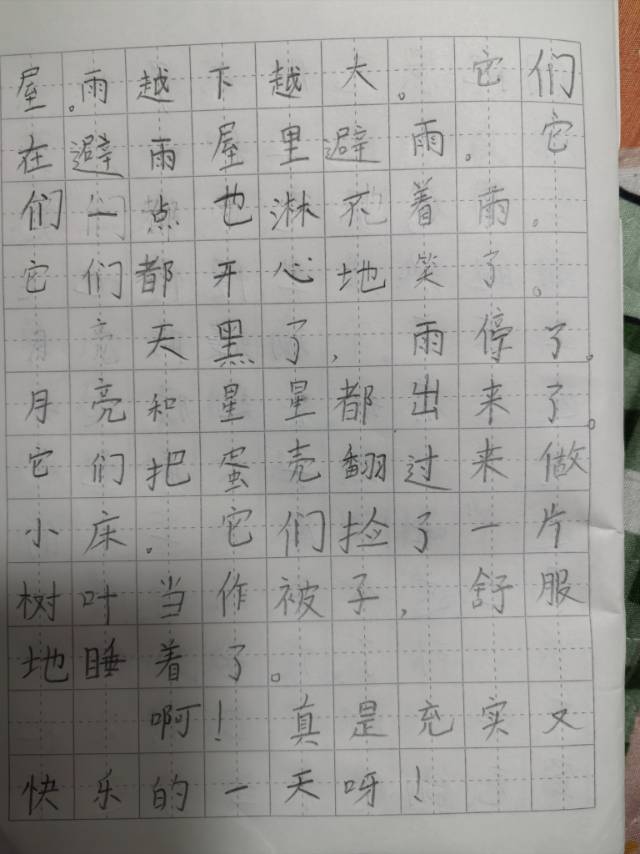 屋。雨越下越大。它们
在避雨屋里避雨。它
们一点也淋不着雨。
它们都开心地笑了。
天黑了，雨停了。
月亮和星星都出来了。
它们把蛋壳翻过来做
小床。它们捡了一片
树叶当作被子，舒服
地睡着了。
啊！真是充实又
快乐的一天呀！